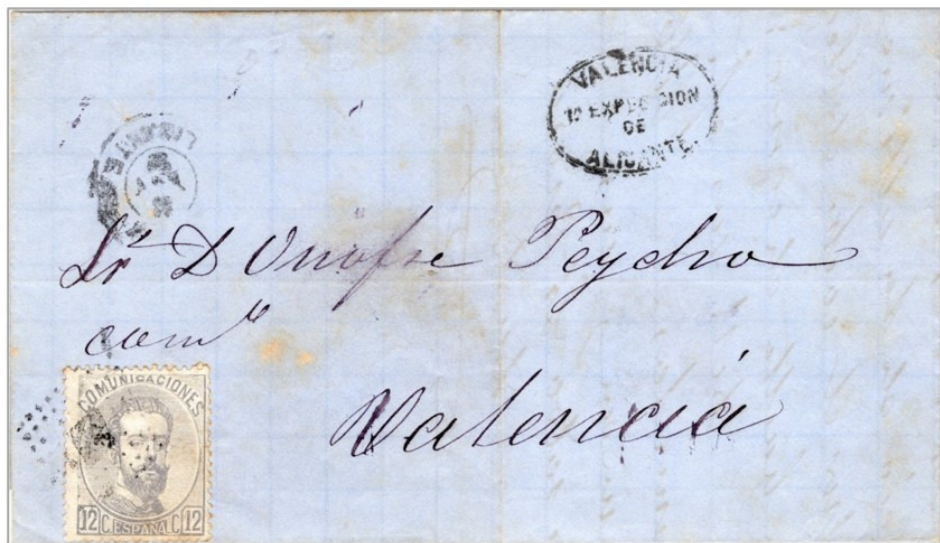 VALENCIA
1ª EXPEDICION
DE
ALICANTE
Sr D Onofre Peydro
comº
Valencia
COMUNICACIONES
12 C. ESPAÑA. C. 12